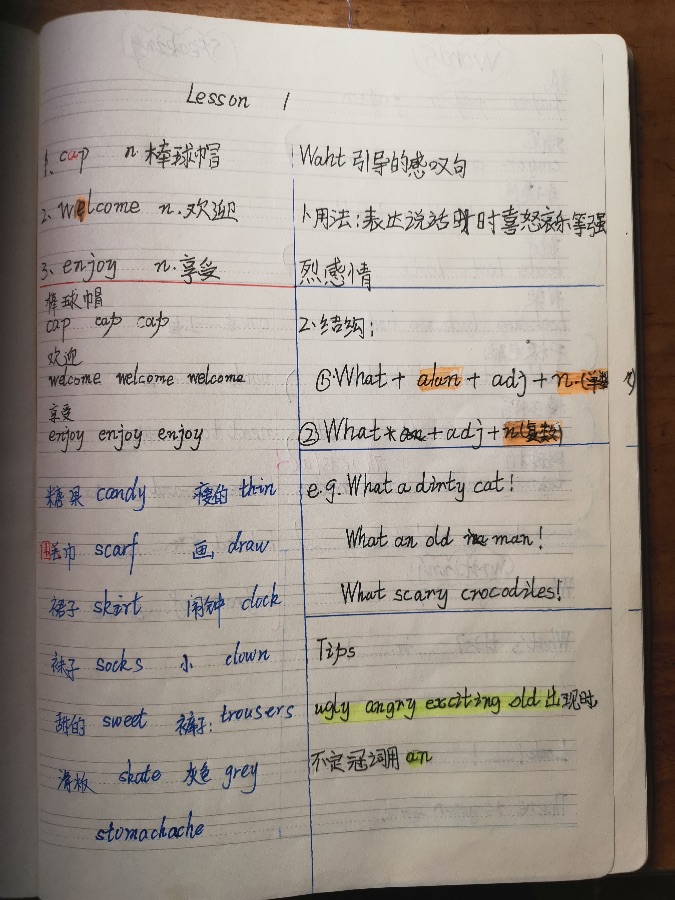 Lesson 1
1. cap n 棒球帽
2. welcome n. 欢迎
3. enjoy n. 享受
棒球帽
cap cap cap
欢迎
welcome welcome welcome
享受
enjoy enjoy enjoy
糖果 candy 瘦的 thin
围巾 scarf 画 draw
裙子 skirt 闹钟 clock
袜子 socks 小 clown
甜的 sweet 裤子: trousers
滑板 skate 灰色 grey
stomachache
Waht 引导的感叹句
1、用法:表达说话时喜怒哀乐等强
烈感情
2、结构:
①What + a/an + adj + n.(单数)
②What + adj + n(复数)
e.g. What a dirty cat!
What an old man!
What scary crocodiles!
Tips
ugly angry exciting old 出现时
不定冠词用 an